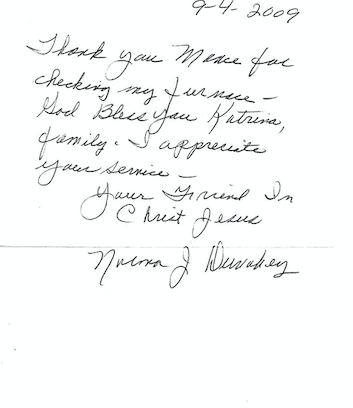 9-4-2009
Thank you for
checking my furnace -
God Bless You Katrina,
family. I appreciate
your service -
Your Friend In
Christ Jesus
Norma J